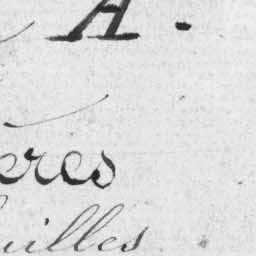 A.
eres
uilles